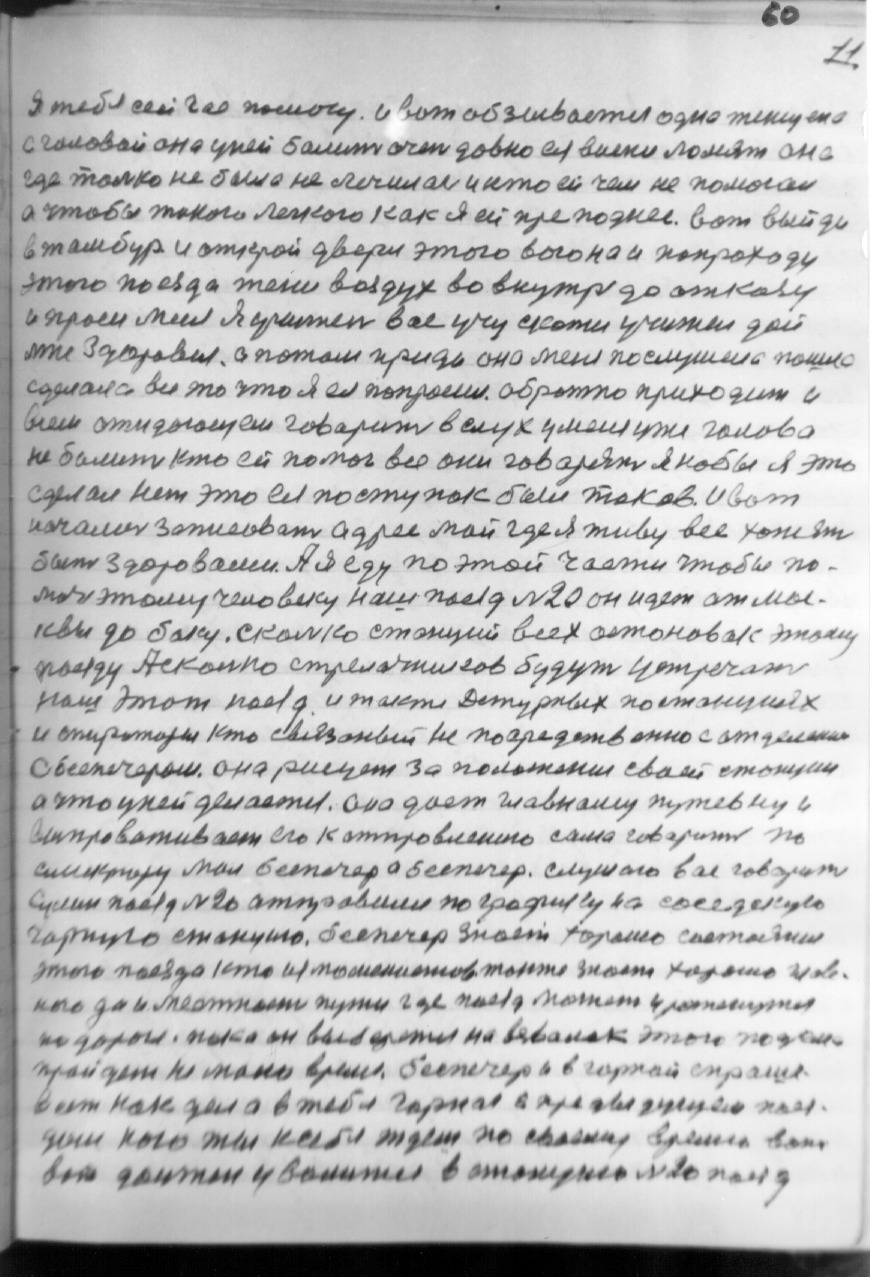 60
11.
я тебя сей час помогу. и вот обзывается одна женщена
с головой она у ней болит очен довно ея виски ломят она
где толко не была не лечилас и кто ей чем не помогал
а чтобы такого легкого как я ей преподнес. вот выйди
в тамбур и открой двери этого вогона и попроходу
этого поезда тени воздух во внутрь до отказу
и проси меня я учител вас учу скажи учител дай
мне здоровия. а потом приди она меня послушела пошла
сделала все то что я ея попросил. обратно приходит и
всем ожидающем говорит вслух у меня уже голова
не болит кто ей помог все они говорят якобы я это
сделал нет это ея поступок был таков. И вот
начали записоват адрес мой где я живу все хотят
быт здоровами. А я еду по этой части чтобы по-
моч этому человеку наш поезд №20 он идет от Мос-
квы до баку. сколко станций всех астоновак этому
поезду А сколко стрелочников будут устречат
наш этот поезд. и также Дежурных по станциях
и операторы кто связаный не посредственно с отделением
с беспечером. она рисует за положения своей станции
а что у ней делается. она дает главному путевку и
выпроваживает его к отправлению сама говорит по
силектору мол беспечер а беспечер. слушаю вас говорит
сушии поезд №20 отправили по графику на соседскую
горную станцию. беспечер знает хорошо состояния
этого поезда кто их тоже знает хорошо
ного да и местности пути где поезд может
по дороги. пока он выберется на этого подъема
пройдет не мало время. беспечер и в горной спраше-
вает как дела в тебя горная с предидущем поез-
дом кого ты к себя ждеш по своему время
вот должен у валится в станцию №20 поезд